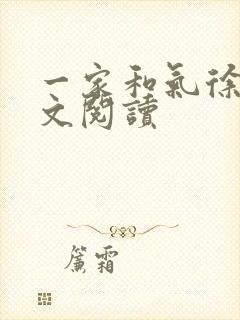 一家和氣徐
文閱讀
簾霜